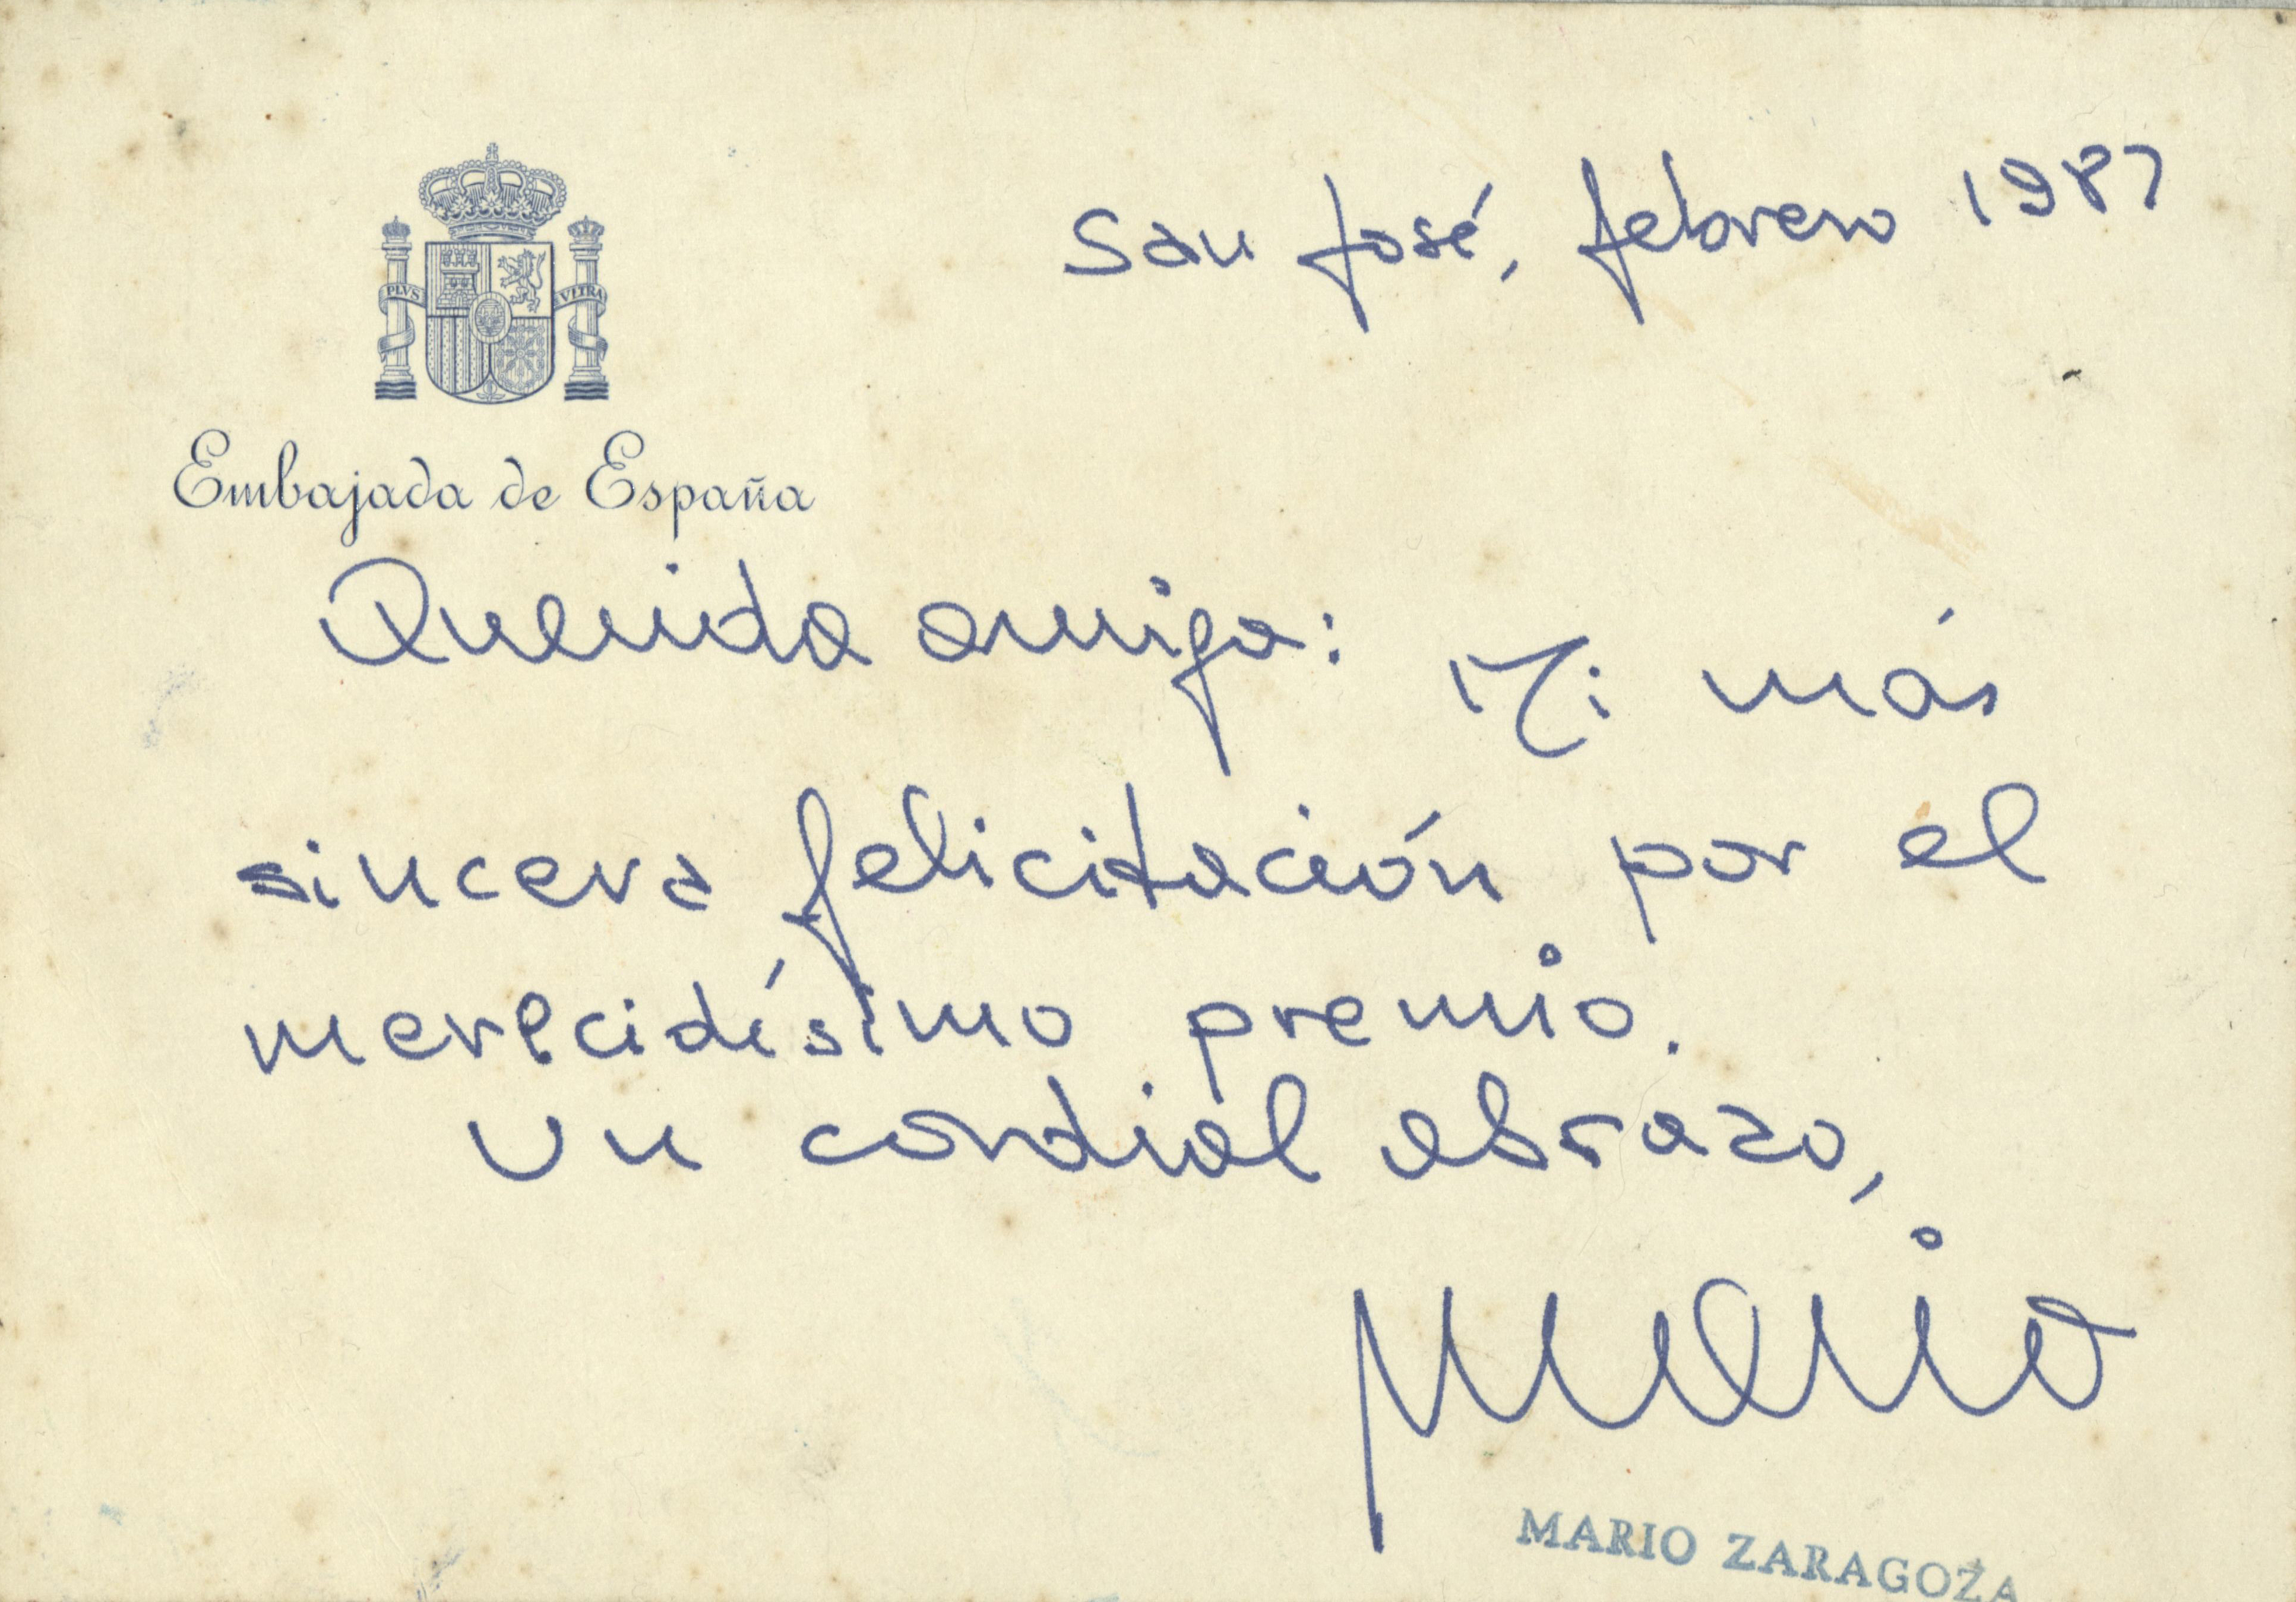 PLVS VLTRA
Embajada de España
San José, febrero 1987
Querida amiga: Mi más
sincera felicitación por el
merecidísimo premio.
Un cordial abrazo,
Mario
MARIO ZARAGOZA